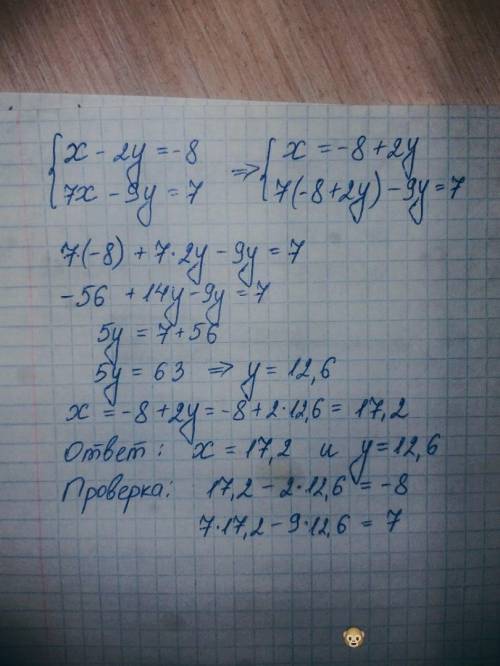 x - 2y = -8 => x = -8 + 2y
7x - 9y = 7 7(-8 + 2y) - 9y = 7
7·(-8) + 7·2y - 9y = 7
-56 + 14y - 9y = 7
5y = 7 + 56
5y = 63 => y = 12,6
x = -8 + 2y = -8 + 2·12,6 = 17,2
Ответ: x = 17,2 и y = 12,6
Проверка: 17,2 - 2·12,6 = -8
7·17,2 - 9·12,6 = 7